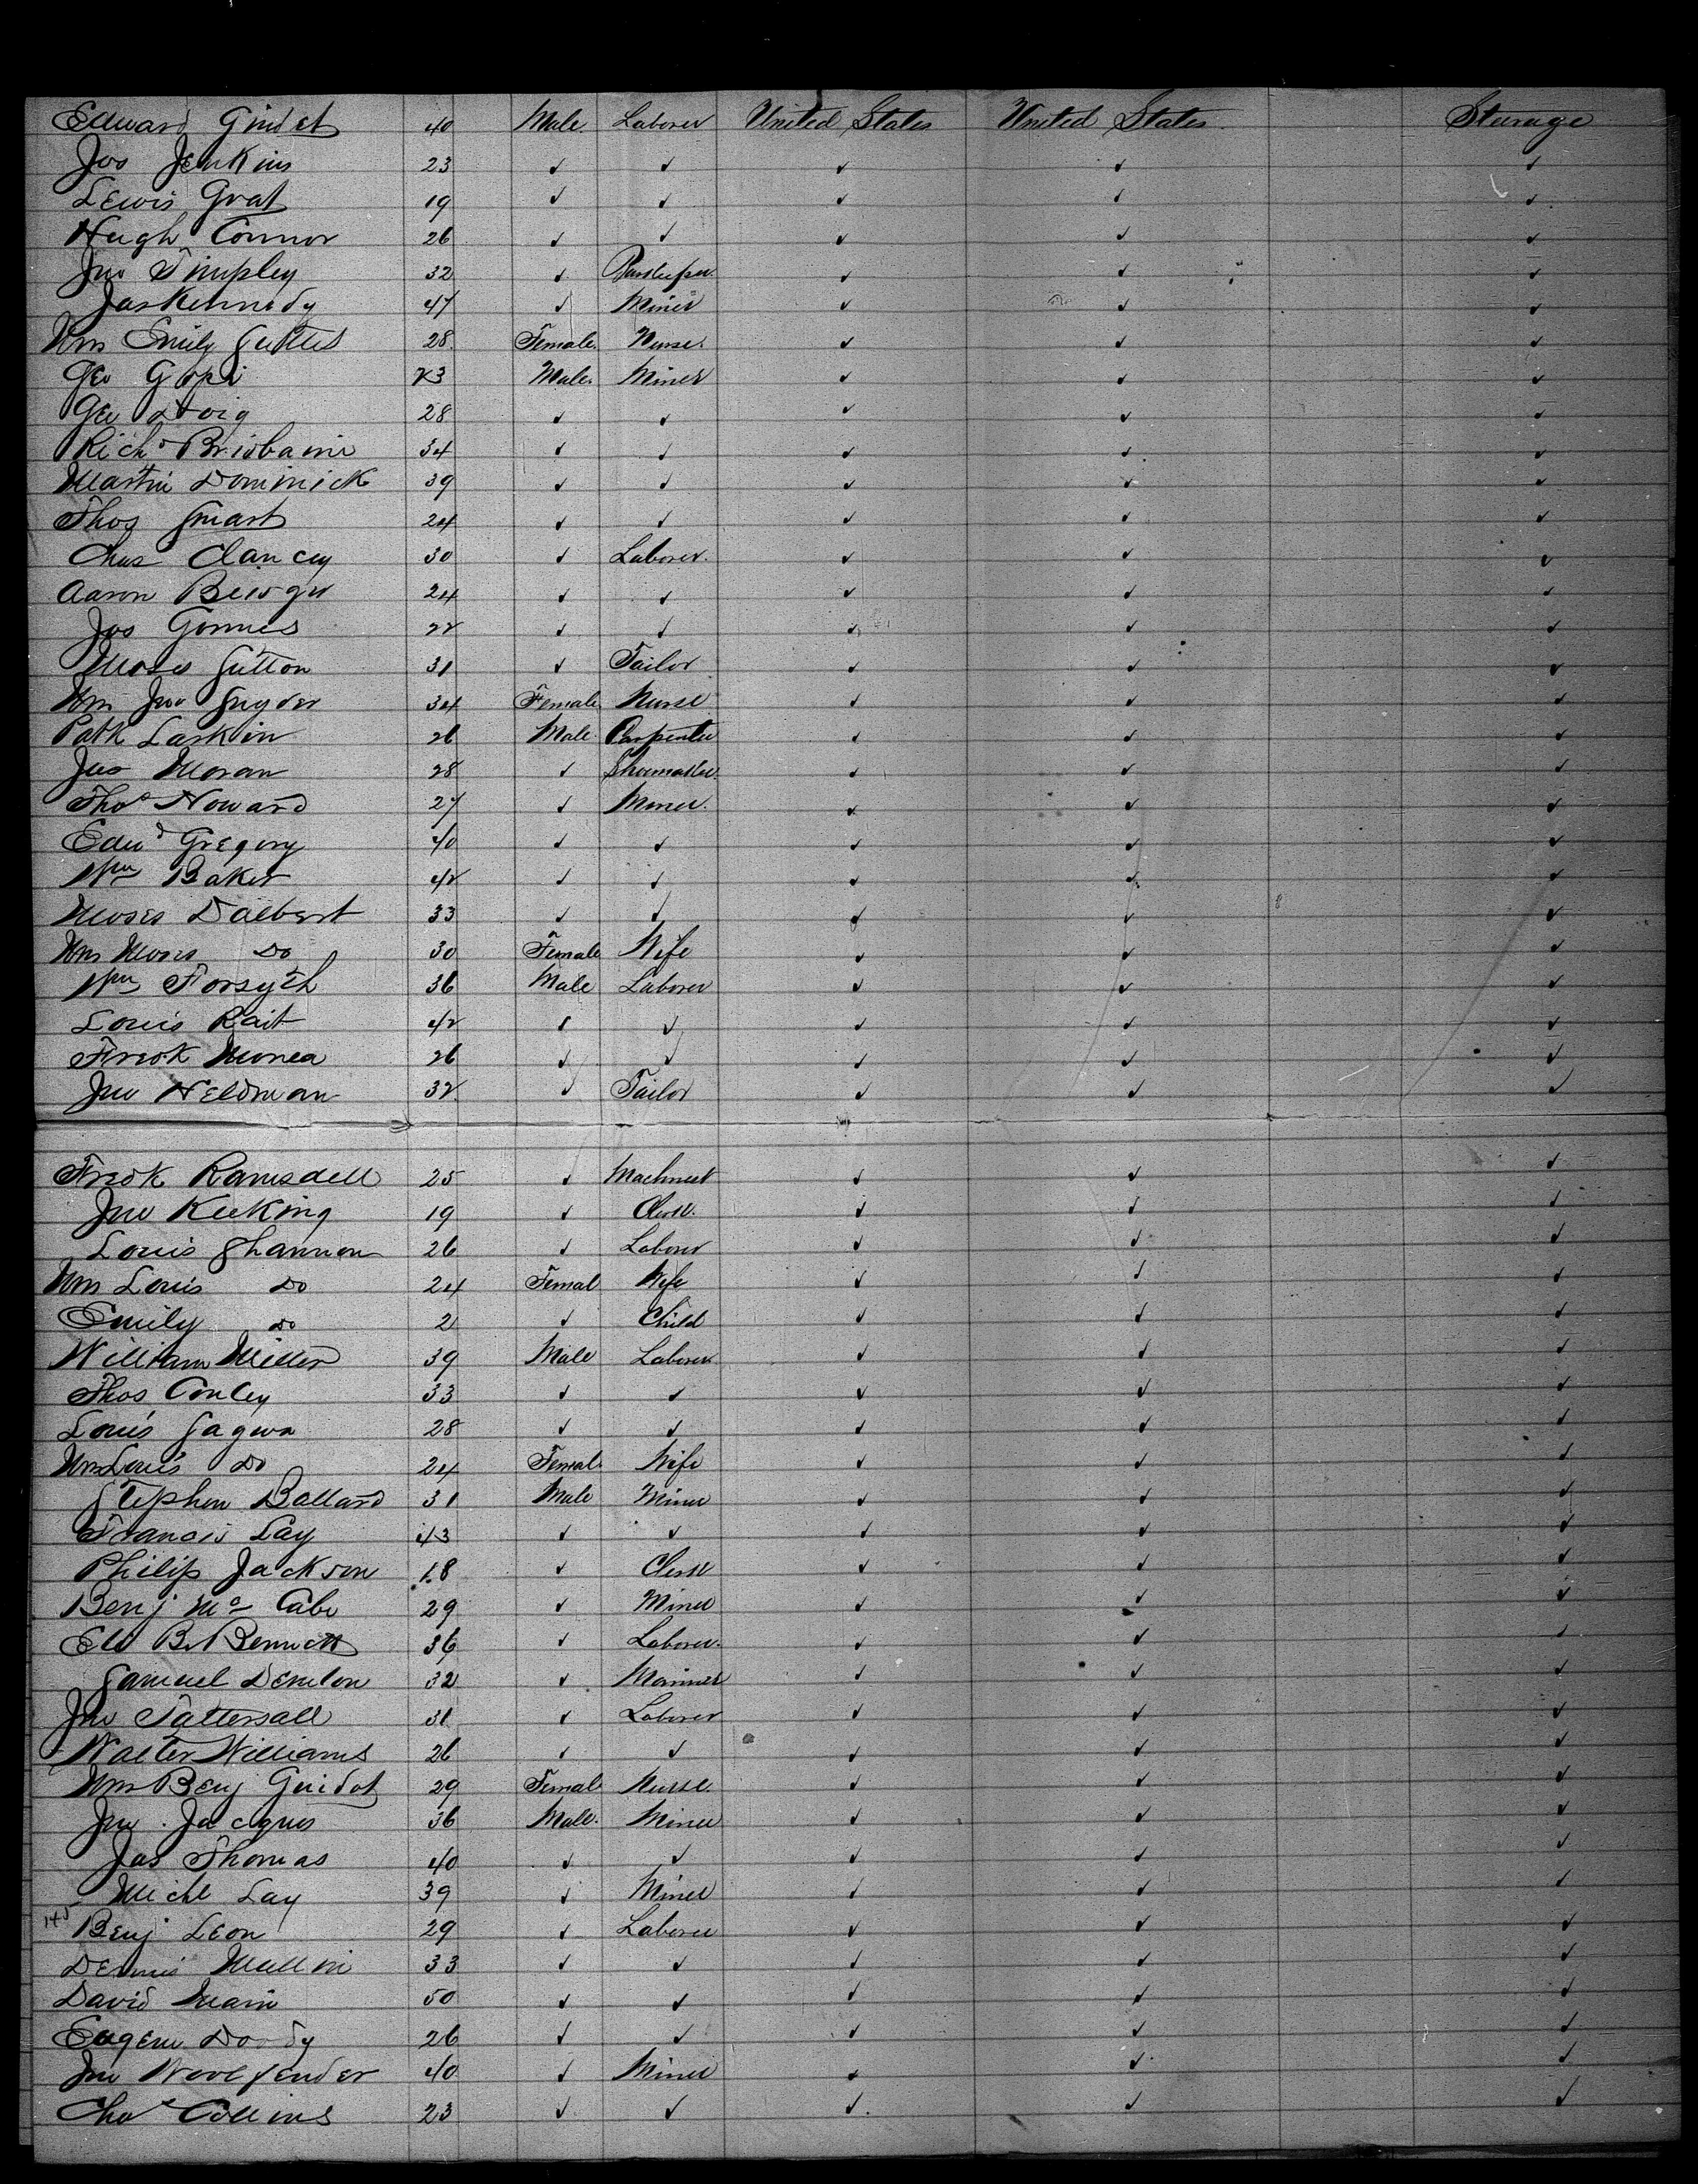 Edward Guidet 40 Male. Laborer United States United States Sterage
Jos Jenkins 23 ✓ ✓ ✓ ✓ ✓
Lewis Grat 19 ✓ ✓ ✓ ✓ ✓
Hugh Connor 26 ✓ ✓ ✓ ✓ ✓
Jno Timpley 32 ✓ Barkeeper ✓ ✓ ✓
Jas Kennedy 47 ✓ Miner ✓ ✓ ✓
Mrs Emily 28. Female. Nurse. ✓ ✓ ✓
Geo 23 Male. Miner ✓ ✓ ✓
Geo Doig 28 ✓ ✓ ✓ ✓ ✓
Richd Brisbaine 34 ✓ ✓ ✓ ✓ ✓
Martin Dominick 39 ✓ ✓ ✓ ✓ ✓
Thos Smart 24 ✓ ✓ ✓ ✓ ✓
Chas Clancey 30 ✓ Laborer. ✓ ✓ ✓
Aaron 24 ✓ ✓ ✓ ✓ ✓
Jos Gomes 22 ✓ ✓ ✓ ✓ ✓
Moses Sutton 31 ✓ Tailor ✓ ✓ ✓
Mrs Jno Snyder 34 Female. Nurse ✓ ✓ ✓
Patk Larkin 26 Male. Carpenter ✓ ✓ ✓
Jas Moran 28 ✓ Shoemaker. ✓ ✓ ✓
Thos Howard 27 ✓ Miner. ✓ ✓ ✓
Edwd Gregory 40 ✓ ✓ ✓ ✓ ✓
Wm Baker 42 ✓ ✓ ✓ ✓ ✓
Moses Dalbert 33 ✓ ✓ ✓ ✓ ✓
Mrs Moses Do 30 Female Wife ✓ ✓ ✓
Wm Forsyth 36 Male Laborer ✓ ✓ ✓
Louis Rait 42 ✓ ✓ ✓ ✓ ✓
Fredk Monea 26 ✓ ✓ ✓ ✓ ✓
Jno Heldman 32 ✓ Tailor ✓ ✓ ✓
Fredk Ramsdell 25 ✓ Machinest ✓ ✓ ✓
Jno Keeking 19 ✓ Clerk. ✓ ✓ ✓
Louis Shannon 26 ✓ Laborer ✓ ✓ ✓
Mrs Louis Do 24 Femal Wife ✓ ✓ ✓
Emily Do 2 ✓ Child ✓ ✓ ✓
William Miller 39 Male Laborer ✓ ✓ ✓
Thos Conley 33 ✓ ✓ ✓ ✓ ✓
Louis 28 ✓ ✓ ✓ ✓ ✓
Mrs Louis Do 24 Femal. Wife ✓ ✓ ✓
Stephen Ballard 31 Male Miner ✓ ✓ ✓
Francis Lay 43 ✓ ✓ ✓ ✓ ✓
Philip Jackson 18 ✓ Clerk ✓ ✓ ✓
Benj Mc Cabe 29 ✓ Miner ✓ ✓ ✓
B. Bennett 36 ✓ Laborer. ✓ ✓ ✓
Samuel Denilon 32 ✓ Mariner ✓ ✓ ✓
Jno Tattersall 31 ✓ Laborer ✓ ✓ ✓
Walter Williams 26 ✓ ✓ ✓ ✓ ✓
Mrs Benj Guidot 29 Femal Nurse. ✓ ✓ ✓
Jno. Jacques 36 Male. Miner ✓ ✓ ✓
Jas Thomas 40 ✓ ✓ ✓ ✓ ✓
Michl Lay 39 ✓ Miner ✓ ✓ ✓
145 Benj Leon 29 ✓ Laborer ✓ ✓ ✓
Dennis Mullin 33 ✓ ✓ ✓ ✓ ✓
David Main 50 ✓ ✓ ✓ ✓ ✓
Eugene Doody 26 ✓ ✓ ✓ ✓ ✓
Jno Woolfender 40 ✓ Miner ✓ ✓ ✓
Chas Collins 23 ✓ ✓ ✓ ✓ ✓